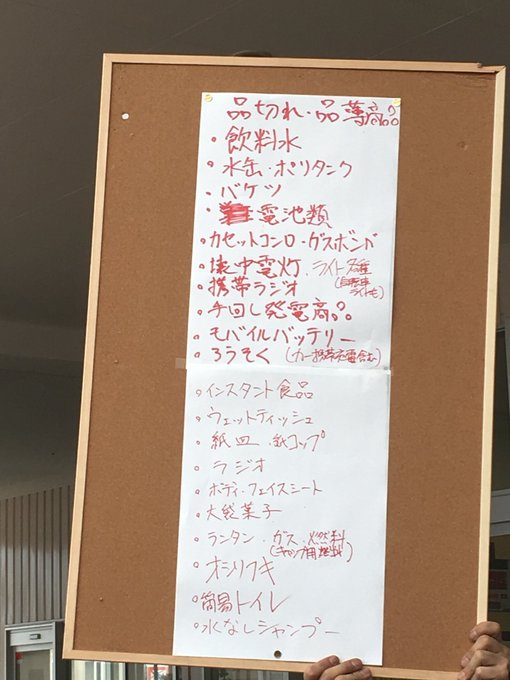 品切れ・品薄商品
・飲料水
・水缶・ポリタンク
・バケツ
・電池類
・カセットコンロ・ガスボンベ
・懐中電灯・ライト各種
(自転車ライトも)
・携帯ラジオ
・手回し発電商品
・モバイルバッテリー
・ろうそく (カー携帯充電含む)
・インスタント食品
・ウェットティッシュ
・紙皿・紙コップ
・ラジオ
・ボディ・フェイスシート
・大袋菓子
・ランタン・ガス・燃料
(キャンプ用燃料)
・オシリフキ
・簡易トイレ
・水なしシャンプー